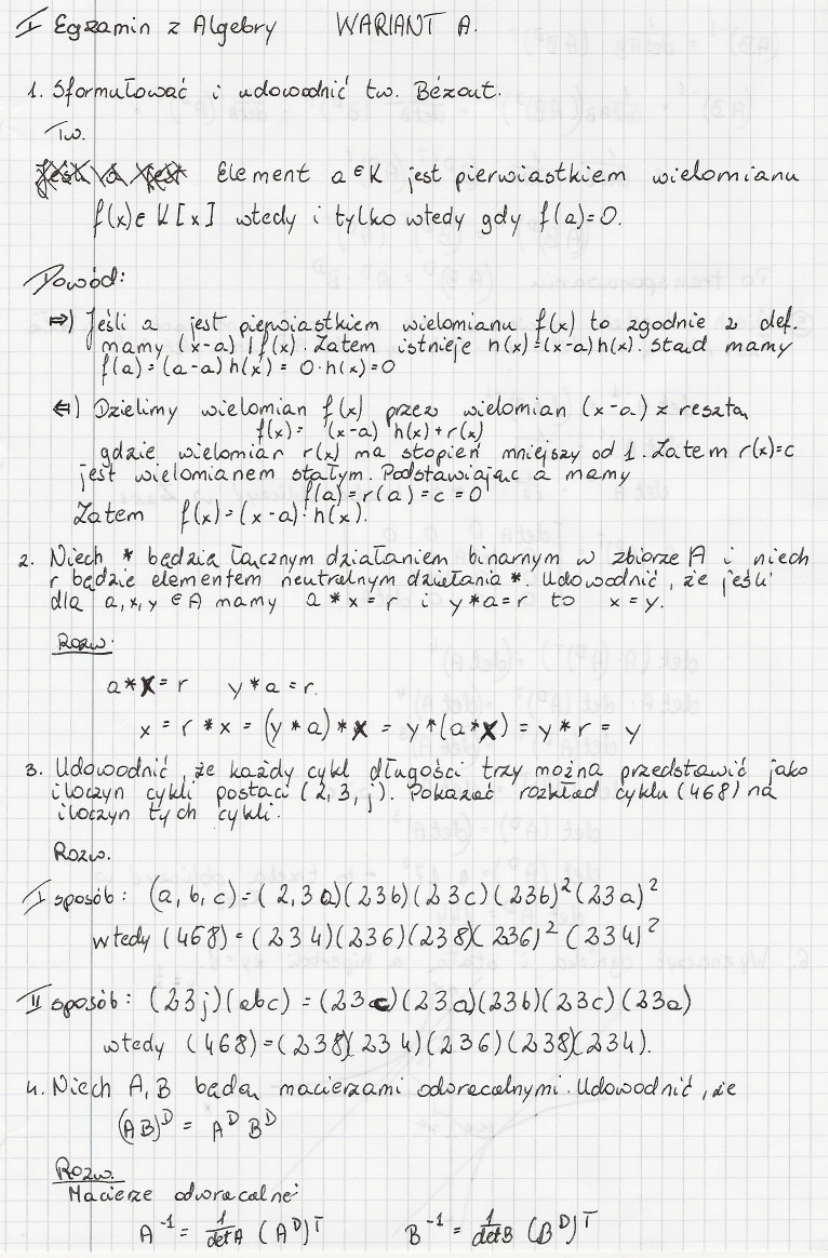 I Egzamin z Algebry WARIANT A.
1. Sformułować i udowodnić tw. Bézout.
Tw.
Jeśli a jest Element a ∈ K jest pierwiastkiem wielomianu
f(x) ∈ K[x] wtedy i tylko wtedy gdy f(a)=0.
Dowód:
⇒) Jeśli a jest pierwiastkiem wielomianu f(x) to zgodnie z def.
mamy (x-a) | f(x). Zatem istnieje h(x)=(x-a)h(x). Stąd mamy
f(a) = (a-a)h(x) = 0·h(x)=0
⇐) Dzielimy wielomian f(x) przez wielomian (x-a) z resztą
f(x) = (x-a) h(x)+r(x)
gdzie wielomian r(x) ma stopień mniejszy od 1. Zatem r(x)=c
jest wielomianem stałym. Podstawiając a mamy
f(a)=r(a)=c=0
Zatem f(x)=(x-a)·h(x).
2. Niech * będzię łącznym działaniem binarnym w zbiorze A i niech
r będzie elementem neutralnym działania *. Udowodnić, że jeśli
dla a,x,y ∈ A mamy a * x = r i y*a=r to x=y.
Rozw.
a*x=r y*a=r.
x = r*x = (y*a)*x = y*(a*x) = y*r = y
3. Udowodnić, że każdy cykl długości trzy można przedstawić jako
iloczyn cykli postaci (2,3,j). Pokazać rozkład cyklu (468) na
iloczyn tych cykli.
Rozw.
I sposób: (a,b,c)=(2,3a)(23b)(23c)(23b)²(23a)²
wtedy (468)=(234)(236)(238)(236)²(234)²
II sposób: (23j)(abc) = (23c)(23a)(23b)(23c)(23a)
wtedy (468)=(238)(234)(236)(238)(234).
4. Niech A,B będą macierzami odwracalnymi. Udowodnić, że
(AB)ᴰ = Aᴰ Bᴰ
Rozw.
Macierze odwracalne:
A⁻¹ = 1/detA (Aᴰ)ᵀ B⁻¹ = 1/detB (Bᴰ)ᵀ